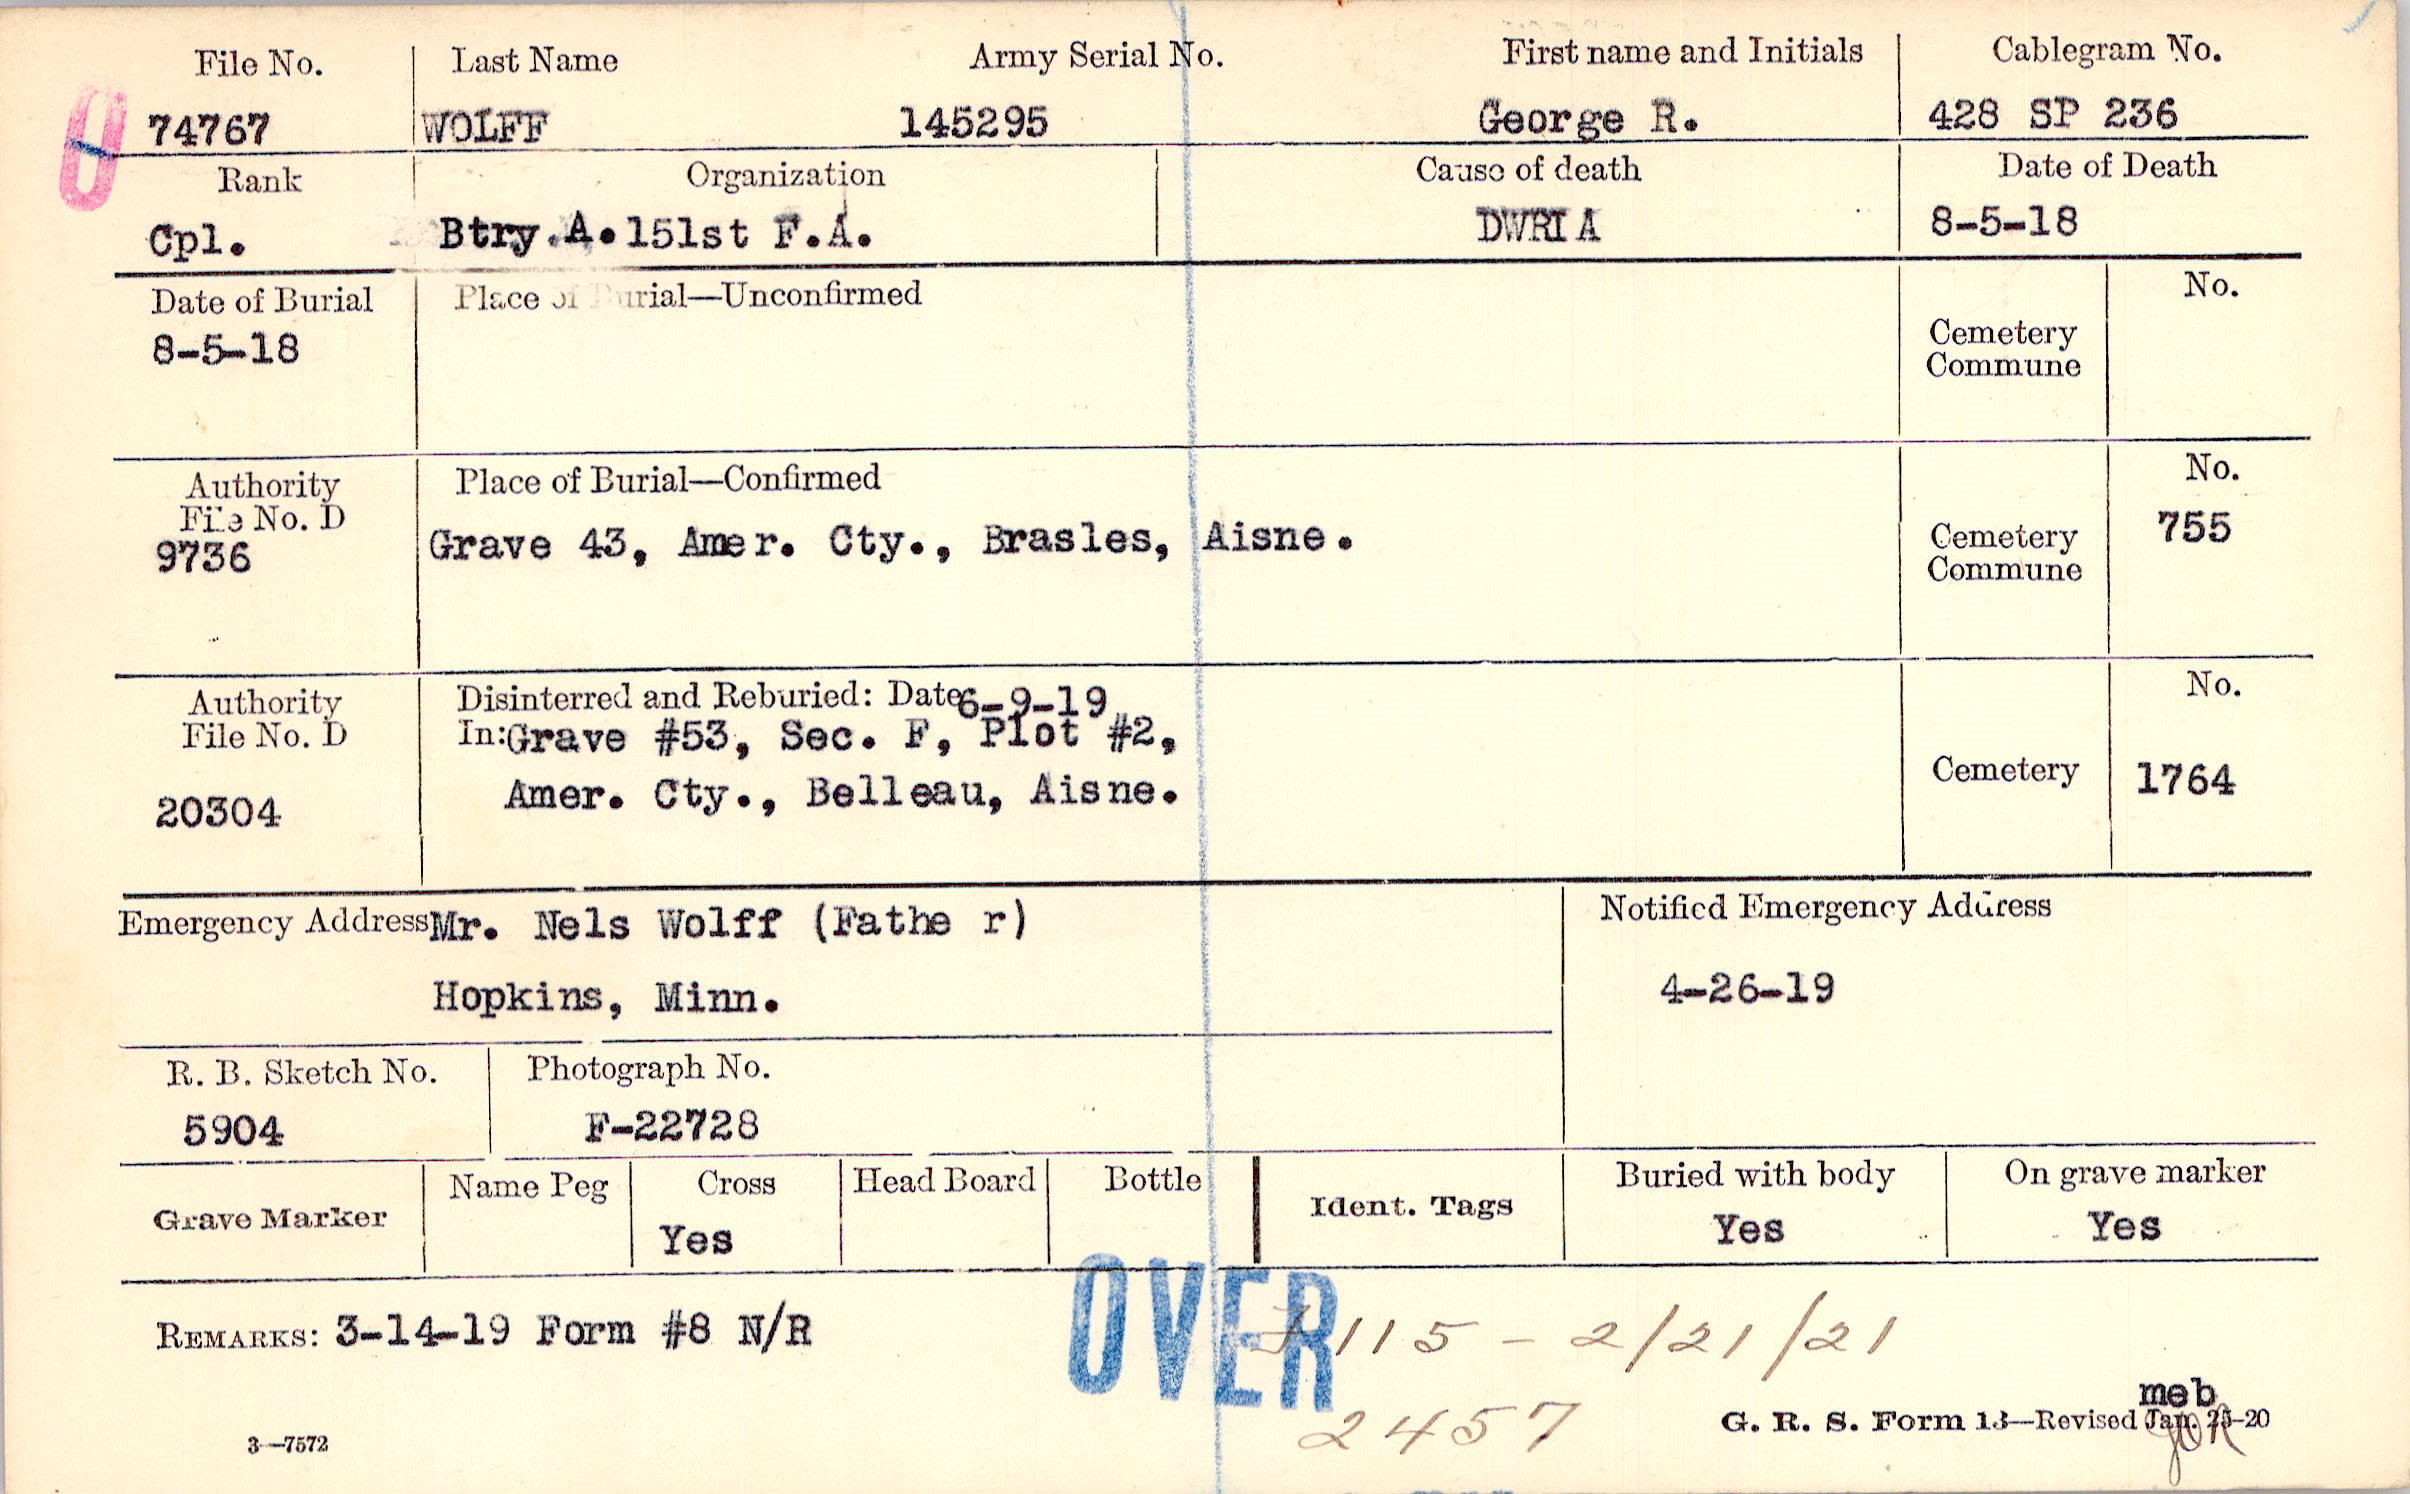 File No. Last Name Army Serial No. First name and Initials Cablegram No.
74767 WOLFF 145295 George R. 428 SP 236
Rank Organization Cause of death Date of Death
Cpl. Btry.A.151st F.A. DWRIA 8-5-18
Date of Burial Place of Burial—Unconfirmed No.
8-5-18
Cemetery
Commune
Authority Place of Burial—Confirmed No.
File No. D
9736 Grave 43, Amer. Cty., Brasles, Aisne. 755
Cemetery
Commune
Authority Disinterred and Reburied: Date 6-9-19 No.
File No. D In: Grave #53, Sec. F, Plot #2,
20304 Amer. Cty., Belleau, Aisne. Cemetery 1764
Emergency Address Mr. Nels Wolff (Fathe r) Notified Emergency Address
Hopkins, Minn. 4-26-19
R. B. Sketch No. Photograph No.
5904 F-22728
Grave Marker Name Peg Cross Head Board Bottle Ident. Tags Buried with body On grave marker
Yes Yes Yes
OVER
REMARKS: 3-14-19 Form #8 N/R 115 - 2/21/21
2457
meb
3—7572 G. R. S. Form 13—Revised Jan. 25-20